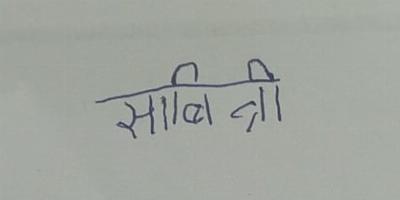 सावित्री